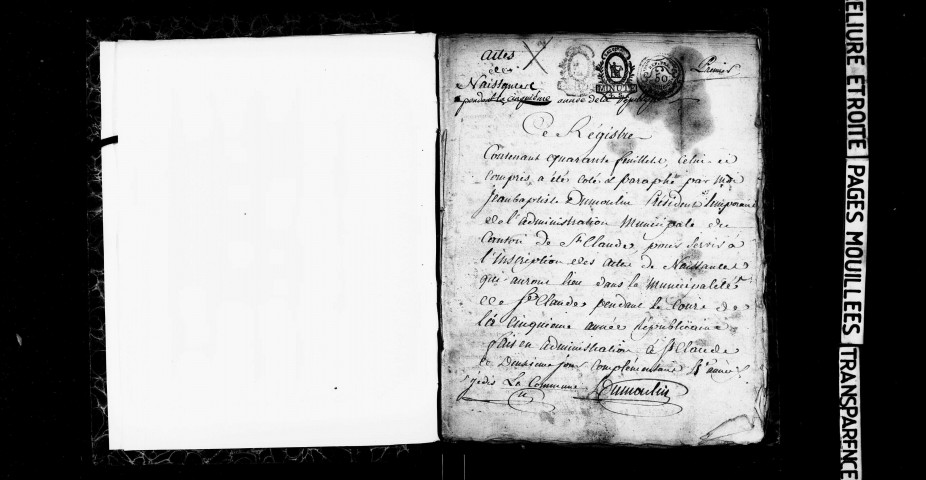 actes
des
Naissances
pendant la cinquième année de la Républ
Premier
MINUTE
Ce Régistre
Contenant quarante feuillets, celui-ci
compris, a été coté & paraphé par moi
Jean baptiste Dumoulin Président temporaire
de l'administration municipale du
Canton de St Claude, pour servir à
l'Inscription des actes de Naissances
qui auront lieu dans la municipalité
de St Claude pendant le cours de
la cinquième année républicaine
fait en administration à St Claude
ce deuxième jour complémentaire 4e année
jadis La Commune
Dumoulin
RELIURE ETROITE
PAGES MOUILLEES
TRANSPARENCE